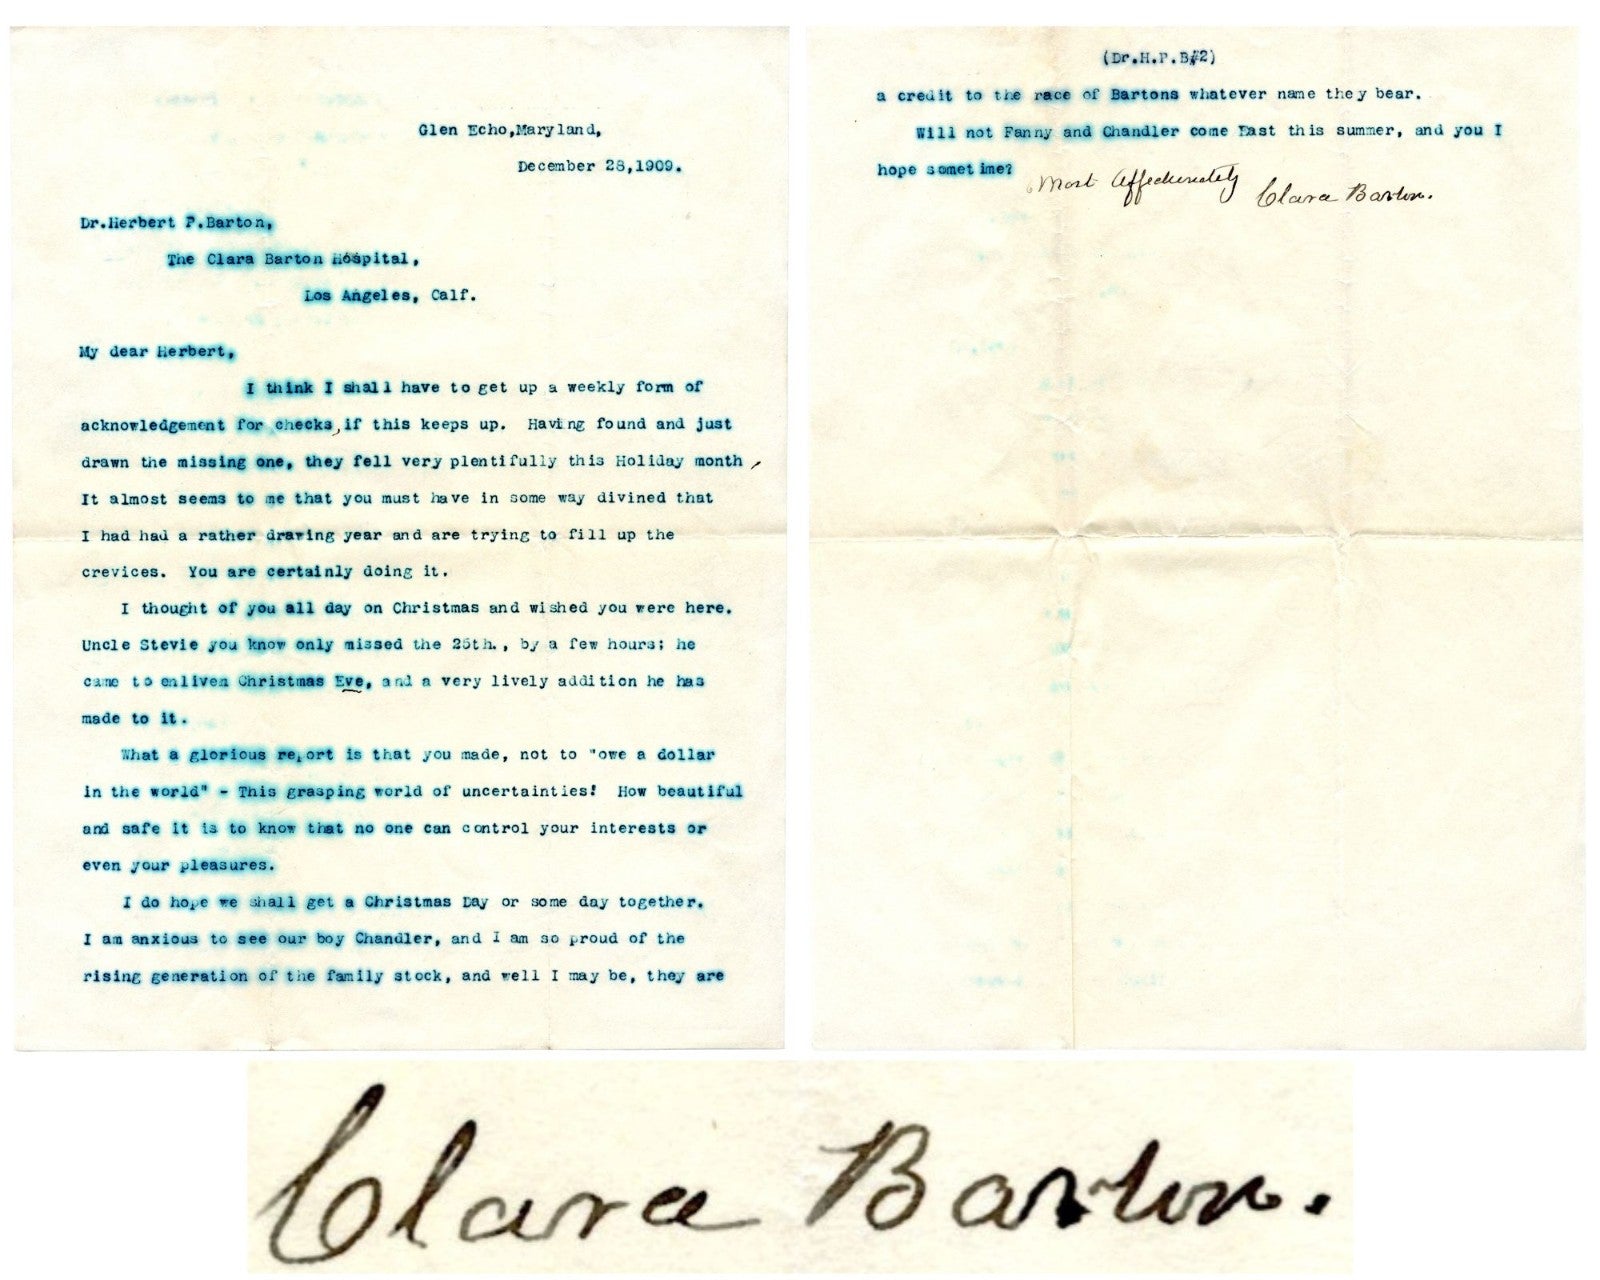 Glen Echo,Maryland,
December 28,1909.
Dr.Herbert P.Barton,
The Clara Barton Hospital,
Los Angeles, Calf.
My dear Herbert,
I think I shall have to get up a weekly form of
acknowledgement for checks,if this keeps up. Having found and just
drawn the missing one, they fell very plentifully this Holiday month,
It almost seems to me that you must have in some way divined that
I had had a rather drawing year and are trying to fill up the
crevices. You are certainly doing it.
I thought of you all day on Christmas and wished you were here.
Uncle Stevie you know only missed the 25th., by a few hours; he
came to enliven Christmas Eve, and a very lively addition he has
made to it.
What a glorious report is that you made, not to "owe a dollar
in the world" - This grasping world of uncertainties! How beautiful
and safe it is to know that no one can control your interests or
even your pleasures.
I do hope we shall get a Christmas Day or some day together.
I am anxious to see our boy Chandler, and I am so proud of the
rising generation of the family stock, and well I may be, they are
(Dr.H.P.B#2)
a credit to the race of Bartons whatever name they bear.
Will not Fanny and Chandler come East this summer, and you I
hope sometime?
Most Affectionately
Clara Barton.
Clara Barton.